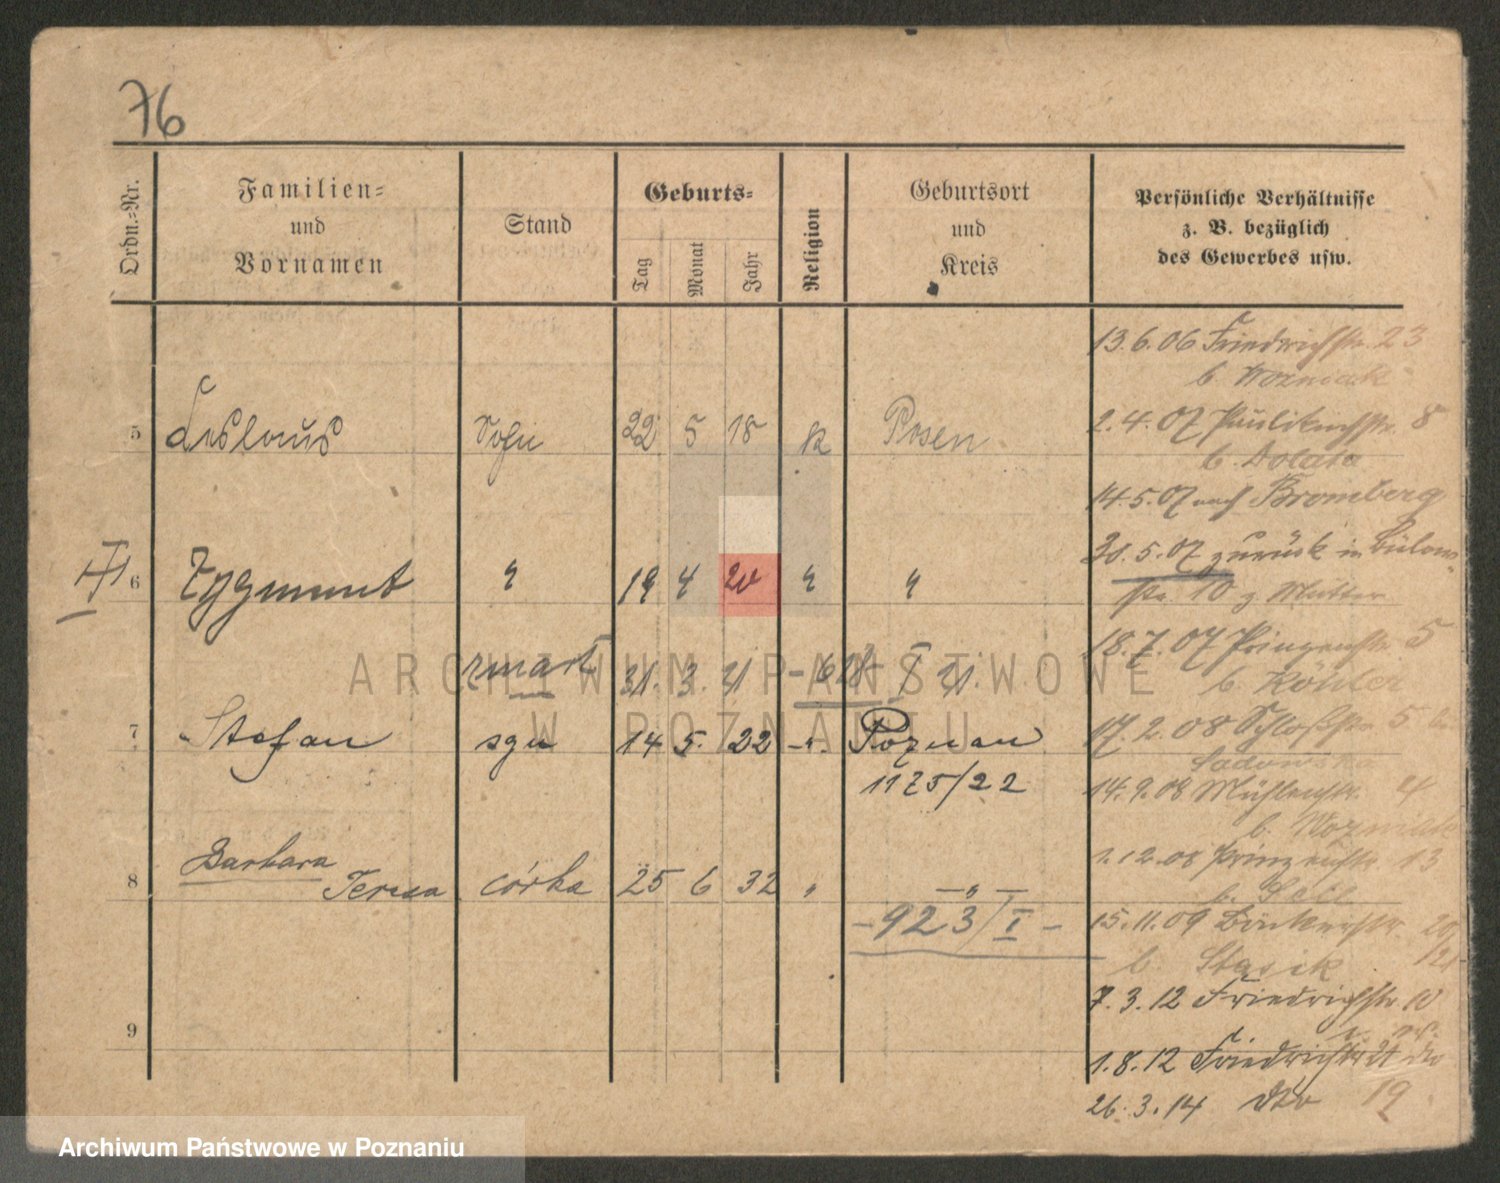 76
Ordn.=Nr.
Familien=
und
Vornamen
Stand
Geburts=
Tag
Monat
Jahr
Religion
Geburtsort
und
Kreis
Persönliche Verhältnisse
z. B. bezüglich
des Gewerbes usw.
5 Leslaus Sohn 22 5 18 k Posen
6 Zygmunt " 19 4 20 " "
zmarł 31. 3. 21 - 618 - I 21.
7 Stefan syn 14 5. 22 -"- Poznan
1175/22
8 Barbara
Teresa córka 25 6 32 " -"-
- 923/I -
9
13.6.06 Friedrichstr. 23
b. Wozniak
2.4.07 Paulikirchstr. 8
b. Dolata
14.5.07 nach Bromberg
30.5.07 zurück in Bülow-
str. 10 z. Mutter
18.7.07 Prinzenstr. 5
b. Köhler
17.2.08 Schloßstr. 5
Sadowska
14.9.08 Mühlenstr. 4
b. Wozniak
1.12.08 Prinzenstr. 13
b.
15.11.09 Bäckerstr. 20
/21
b. Stasik
7.3.12 Friedrichstr. 10
1.8.12 Friedrichstr. 21
26.3.14 dto 19
ARCHIWUM PAŃSTWOWE
W POZNANIU
Archiwum Państwowe w Poznaniu